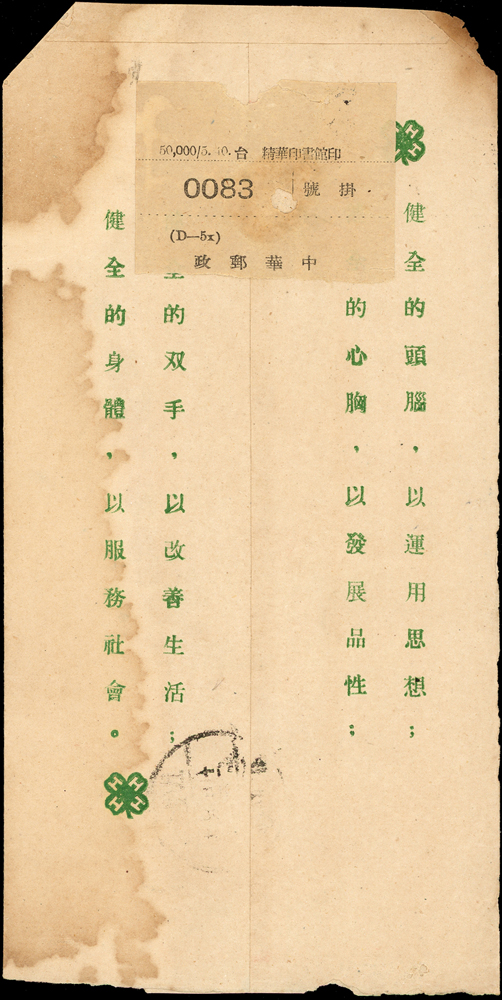 50,000/5.40. 台 精華印書館印
掛號 0083
(D—5x)
中華郵政
健全的頭腦，以運用思想；
的心胸，以發展品性；
的双手，以改善生活；
健全的身體，以服務社會。
H H H H
H H H H